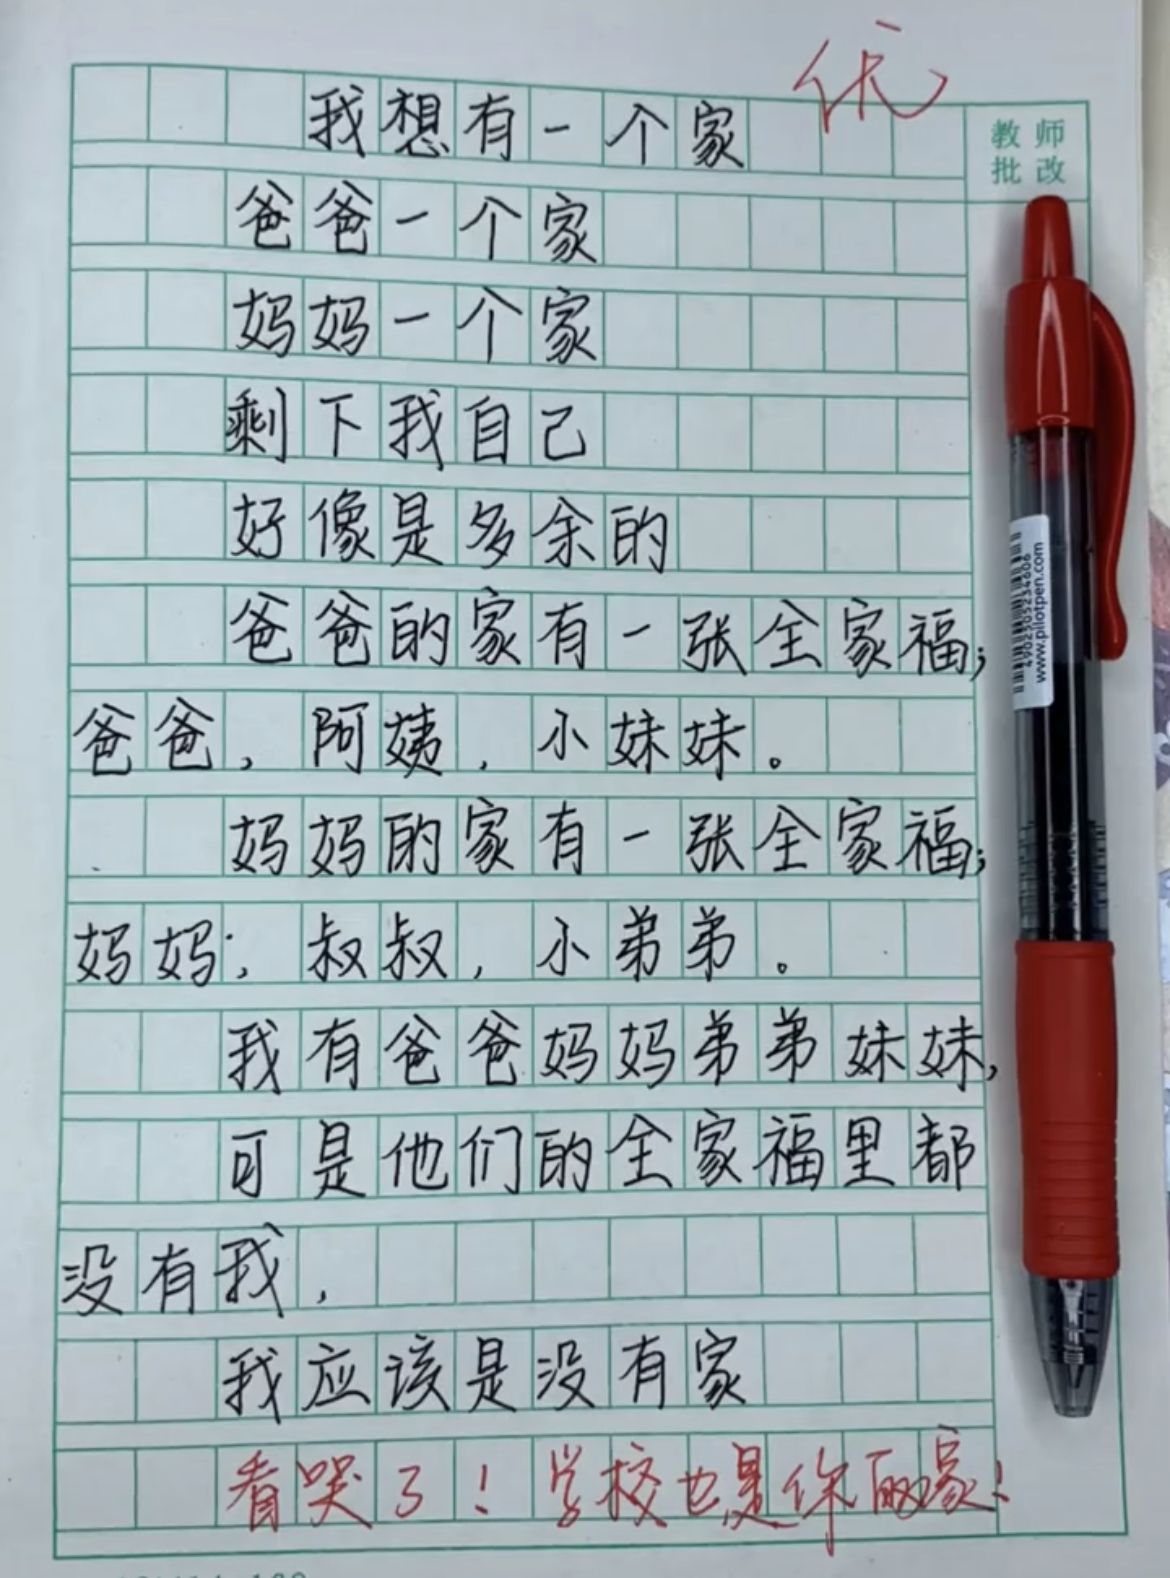 优
我想有一个家
教师
批改
爸爸一个家
妈妈一个家
剩下我自己
好像是多余的
爸爸的家有一张全家福;
爸爸,阿姨,小妹妹。
妈妈的家有一张全家福;
妈妈;叔叔,小弟弟。
我有爸爸妈妈弟弟妹妹,
可是他们的全家福里都
没有我,
我应该是没有家
看哭了!学校也是你的家!
www.pilotpen.com